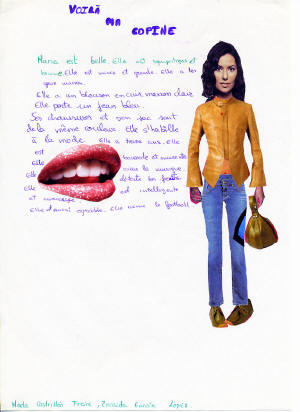 VOILÀ
MA
COPINE
Maria est belle. Elle est sympathique et
bonne. Elle est mince et grande. Elle a les
yeux marron.
Elle a un blouson en cuir marron clair.
Elle porte un jean bleu.
Ses chaussures et son sac sont
de la même couleur. Elle s'habille
à la mode. Elle a treize ans. Elle
est
Elle aime la musique.
Elle déteste les
est intelligente
et
Elle est aussi agréable. Elle aime le football
Marta Castrillón Freire, Zoraida García López.